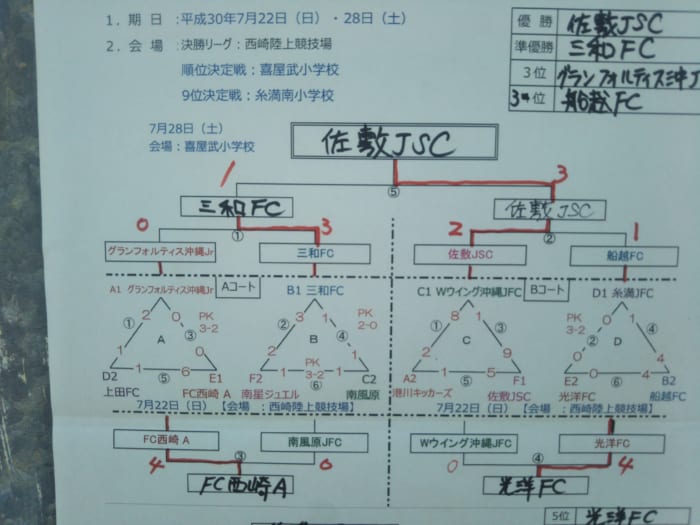 1. 期 日 :平成30年7月22日（日）・28日（土）
2. 会 場 :決勝リーグ：西崎陸上競技場
順位決定戦：喜屋武小学校
9位決定戦：糸満南小学校
優 勝 佐敷JSC
準優勝 三和FC
3 位 グランフォルティス沖J
3 位 船越FC
7月28日（土）
会場：喜屋武小学校
佐敷JSC
1 3
⑤
三和FC 佐敷JSC
0 ① 3 2 ② 1
グランフォルティス沖縄Jr 三和FC 佐敷JSC 船越FC
A1 グランフォルティス沖縄Jr Aコート B1 三和FC C1 Wウイング沖縄JFC Bコート D1 糸満FC
PK
3-2
PK
2-0
PK
3-2
① 2 3 ③ A 1 0 1 ⑤ 6
② 3 1 ④ B 2 1 1 ⑥ 1
PK
3-2
① 8 1 ③ C 1 9 1 ⑤ 5
② 0 1 ④ D 2 4 0 ⑥ 4
D2 E1 F2 C2 A2 F1 E2 B2
上田FC FC西崎 A 南星ジュエル 南風原 港川キッカーズ 佐敷JSC 光洋FC 船越FC
7月22日（日）【会場：西崎陸上競技場】 7月22日（日）【会場：西崎陸上競技場】
FC西崎 A 南風原JFC Wウイング沖縄JFC 光洋FC
4 ③ 0 0 ④ 4
FC西崎A 光洋FC
5位 光洋FC